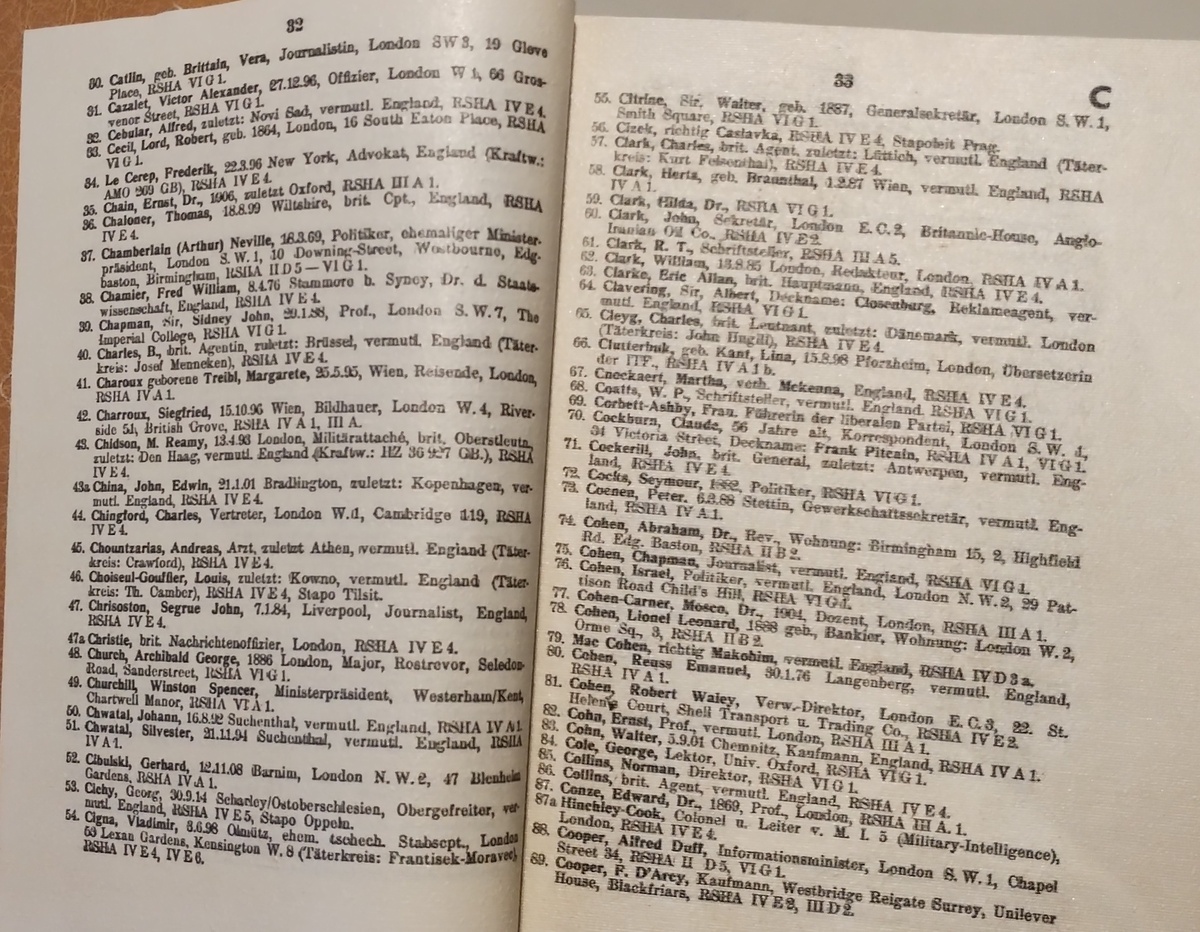 32
30. Catlin, geb. Brittain, Vera, Journalistin, London SW 3, 19 Gleve
Place, RSHA VI G 1.
31. Cazalet, Victor Alexander, 27.12.96, Offizier, London W 1, 66 Gros-
venor Street, RSHA VI G 1.
32. Cebular, Alfred, zuletzt: Novi Sad, vermutl. England, RSHA IV E 4.
33. Cecil, Lord, Robert, geb. 1864, London, 16 South Eaton Place, RSHA
VI G 1.
34. Le Cerep, Frederik, 22.3.96 New York, Advokat, England (Kraftw.:
AMO 269 GB), RSHA IV E 4.
35. Chain, Ernst, Dr., 1906, zuletzt Oxford, RSHA III A 1.
36. Chaloner, Thomas, 18.8.99 Wiltshire, brit. Cpt., England, RSHA
IV E 4.
37. Chamberlain (Arthur) Neville, 18.3.69, Politiker, ehemaliger Minister-
präsident, London S. W. 1, 10 Downing-Street, Westbourne, Edg-
baston, Birmingham, RSHA II D 5 — VI G 1.
38. Chamier, Fred William, 8.4.76 Stammore b. Syney, Dr. d. Staats-
wissenschaft, England, RSHA IV E 4.
39. Chapman, Sir, Sidney John, 29.1.88, Prof., London S. W. 7, The
Imperial College, RSHA VI G 1.
40. Charles, B., brit. Agentin, zuletzt: Brüssel, vermutl. England (Täter-
kreis: Josef Menneken), RSHA IV E 4.
41. Charoux geborene Treibl, Margarete, 25.5.95, Wien, Reisende, London,
RSHA IV A 1.
42. Charroux, Siegfried, 15.10.96 Wien, Bildhauer, London W. 4, River-
side 51, British Grove, RSHA IV A 1, III A.
43. Chidson, M. Reamy, 13.4.93 London, Militärattaché, brit. Oberstleutn.,
zuletzt: Den Haag, vermutl. England (Kraftw.: HZ 36 927 GB.), RSHA
IV E 4.
43a China, John, Edwin, 21.1.01 Bradlington, zuletzt: Kopenhagen, ver-
mutl. England, RSHA IV E 4.
44. Chingford, Charles, Vertreter, London W.1, Cambridge 119, RSHA
IV E 4.
45. Chountzarias, Andreas, Arzt, zuletzt Athen, vermutl. England (Täter-
kreis: Crawford), RSHA IV E 4.
46. Choiseul-Gouffier, Louis, zuletzt: Kowno, vermutl. England (Täter-
kreis: Th. Camber), RSHA IV E 4, Stapo Tilsit.
47. Chrisoston, Segrue John, 7.1.84, Liverpool, Journalist, England,
RSHA IV E 4.
47a Christie, brit. Nachrichtenoffizier, London, RSHA IV E 4.
48. Church, Archibald George, 1886 London, Major, Rostrevor, Seledon-
Road, Sanderstreet, RSHA VI G 1.
49. Churchill, Winston Spencer, Ministerpräsident, Westerham/Kent,
Chartwell Manor, RSHA VI A 1.
50. Chwatal, Johann, 16.8.92 Suchenthal, vermutl. England, RSHA IV A 1.
51. Chwatal, Silvester, 21.11.94 Suchenthal, vermutl. England, RSHA
IV A 1.
52. Cibulski, Gerhard, 12.11.08 Barnim, London N. W. 2, 47 Blenheim
Gardens, RSHA IV A 1.
53. Cichy, Georg, 30.9.14 Scharley/Ostoberschlesien, Obergefreiter, ver-
mutl. England, RSHA IV E 5, Stapo Oppeln.
54. Cigna, Vladimir, 3.6.98 Olmütz, ehem. tschech. Stabscpt., London
53 Lexan Gardens, Kensington W. 8 (Täterkreis: Frantisek-Moravec),
RSHA IV E 4, IV E 6.
33
C
55. Citrine, Sir, Walter, geb. 1887, Generalsekretär, London S. W. 1,
Smith Square, RSHA VI G 1.
56. Cizek, richtig Caslavka, RSHA IV E 4, Stapoleit Prag.
57. Clark, Charles, brit. Agent, zuletzt: Lüttich, vermutl. England (Täter-
kreis: Kurt Felsenthal), RSHA IV E 4.
58. Clark, Herta, geb. Braunthal, 1.2.87 Wien, vermutl. England, RSHA
IV A 1.
59. Clark, Hilda, Dr., RSHA VI G 1.
60. Clark, John, Sekretär, London E. C. 2, Britannic-House, Anglo-
Iranian Oil Co., RSHA IV E 2.
61. Clark, R. T., Schriftsteller, RSHA III A 5.
62. Clark, William, 13.8.85 London, Redakteur, London, RSHA IV A 1.
63. Clarke, Eric Allan, brit. Hauptmann, England, RSHA IV E 4.
64. Clavering, Sir, Albert, Deckname: Closenburg, Reklameagent, ver-
mutl. England, RSHA VI G 1.
65. Cleyg, Charles, brit. Leutnant, zuletzt: Dänemark, vermutl. London
(Täterkreis: John Hugill), RSHA IV E 4.
66. Clutterbuk, geb. Kanf, Lina, 15.8.98 Pforzheim, London, Übersetzerin
der ITF., RSHA IV A 1 b.
67. Cnockaert, Martha, verh. Mckenna, England, RSHA IV E 4.
68. Coatts, W. P., Schriftsteller, vermutl. England. RSHA VI G 1.
69. Corbett-Ashby, Frau, Führerin der liberalen Partei, RSHA VI G 1.
70. Cockburn, Claude, 56 Jahre alt, Korrespondent, London S. W. 1,
34 Victoria Street, Deckname: Frank Pitcain, RSHA IV A 1, VI G 1.
71. Cockerill, John, brit. General, zuletzt: Antwerpen, vermutl. Eng-
land, RSHA IV E 4.
72. Cocks, Seymour, 1882, Politiker, RSHA VI G 1.
73. Coenen, Peter. 6.3.88 Stettin, Gewerkschaftssekretär, vermutl. Eng-
land, RSHA IV A 1.
74. Cohen, Abraham, Dr., Rev., Wohnung: Birmingham 15, 2, Highfield
Rd. Edg. Baston, RSHA II B 2.
75. Cohen, Chapman, Journalist, vermutl. England, RSHA VI G 1.
76. Cohen, Israel, Politiker, vermutl. England, London N. W. 2, 29 Pat-
tison Road Child's Hill, RSHA VI G 1.
77. Cohen-Carner, Mosco, Dr., 1904, Dozent, London, RSHA III A 1.
78. Cohen, Lionel Leonard, 1888 geb., Bankier, Wohnung: London W. 2,
Orme Sq., 3, RSHA II B 2.
79. Mac Cohen, richtig Makohim, vermutl. England, RSHA IV D 3 a.
80. Cohen, Reuss Emanuel, 30.1.76 Langenberg, vermutl. England,
RSHA IV A 1.
81. Cohen, Robert Waley, Verw.-Direktor, London E. C. 3, 22. St.
Helen's Court, Shell Transport u. Trading Co., RSHA IV E 2.
82. Cohn, Ernst, Prof., vermutl. London, RSHA III A 1.
83. Cohn, Walter, 5.9.01 Chemnitz, Kaufmann, England, RSHA IV A 1.
84. Cole, George, Lektor, Univ. Oxford, RSHA VI G 1.
85. Collins, Norman, Direktor, RSHA VI G 1.
86. Collins, brit. Agent, vermutl. England, RSHA IV E 4.
87. Conze, Edward, Dr., 1869, Prof., London, RSHA III A 1.
87a Hinchley-Cook, Colonel u. Leiter v. M. I. 5 (Military-Intelligence),
London, RSHA IV E 4.
88. Cooper, Alfred Duff, Informationsminister, London S. W. 1, Chapel
Street 34, RSHA II D 5, VI G 1.
89. Cooper, F. D'Arcy, Kaufmann, Westbridge Reigate Surrey, Unilever
House, Blackfriars, RSHA IV E 2, III D 2.